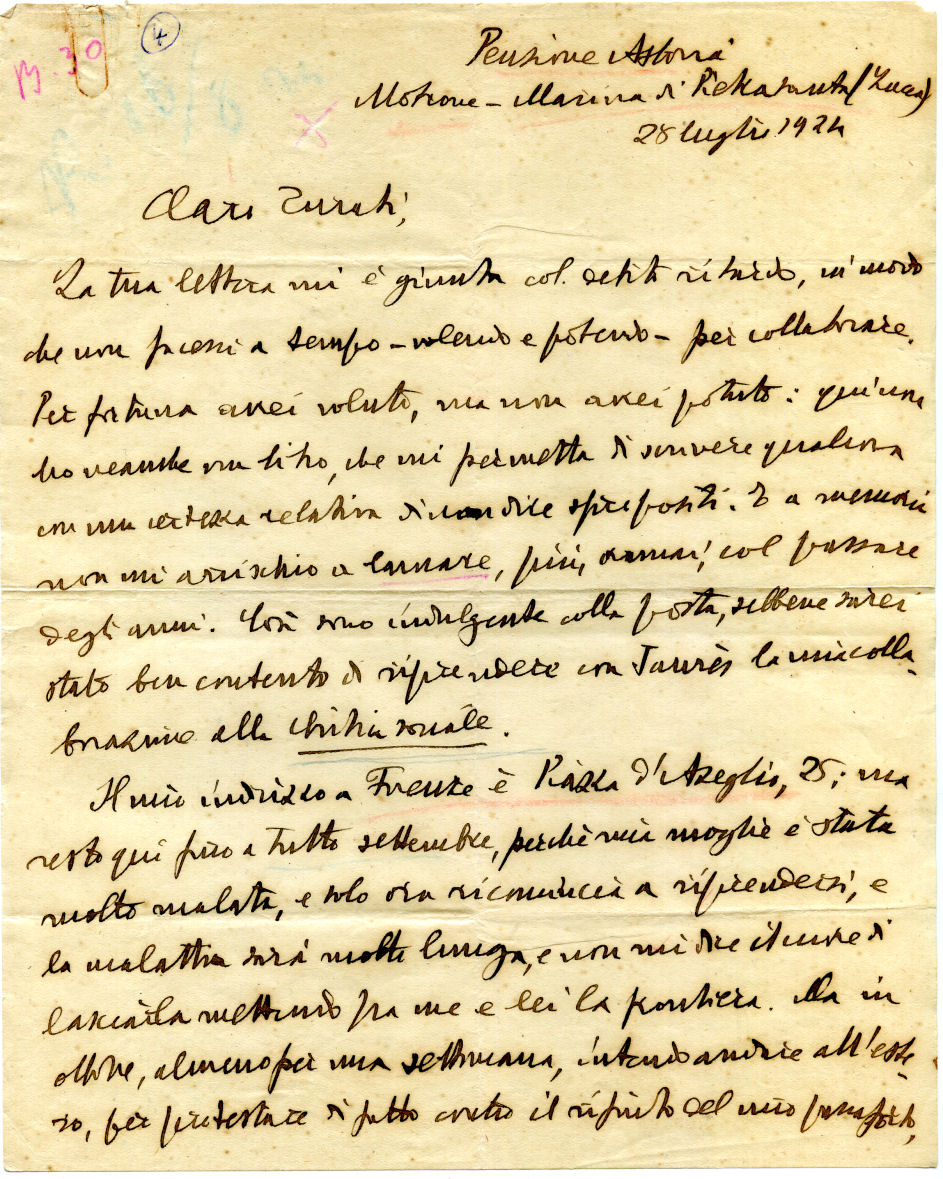 B. 30
4
Pensione Astoria
Motrone - Marina di Pietrasanta (Lucca)
28 luglio 1924
Caro Turati,
La tua lettera mi è giunta col. solito ritardo, in modo
che non facessi a tempo - volendo e potendo - per collaborare.
Per fortuna avrei voluto, ma non avrei potuto: qui non
ho neanche un libro, che mi permetta di scrivere qualcosa
con una certezza relativa di non dire spropositi. E a memoria
non mi arrischio a lavorare, più, oramai, col passare
degli anni. Così sono indulgente colla posta, sebbene sarei
stato ben contento di riprendere con Jaurès la mia colla-
borazione alla Critica sociale.
Il mio indirizzo a Firenze è Piazza d'Azeglio, 25; ma
resto qui fino a tutto settembre, perchè mia moglie è stata
molto malata, e solo ora ricomincia a riprendersi, e
la malattia sarà molto lunga, e non mi dice il cuore di
lasciarla mettendo fra me e lei la frontiera. Ma in
ottobre, almeno per una settimana, intendo andare all'este-
ro, per protestare di fatto contro il rifiuto del mio passaporto,